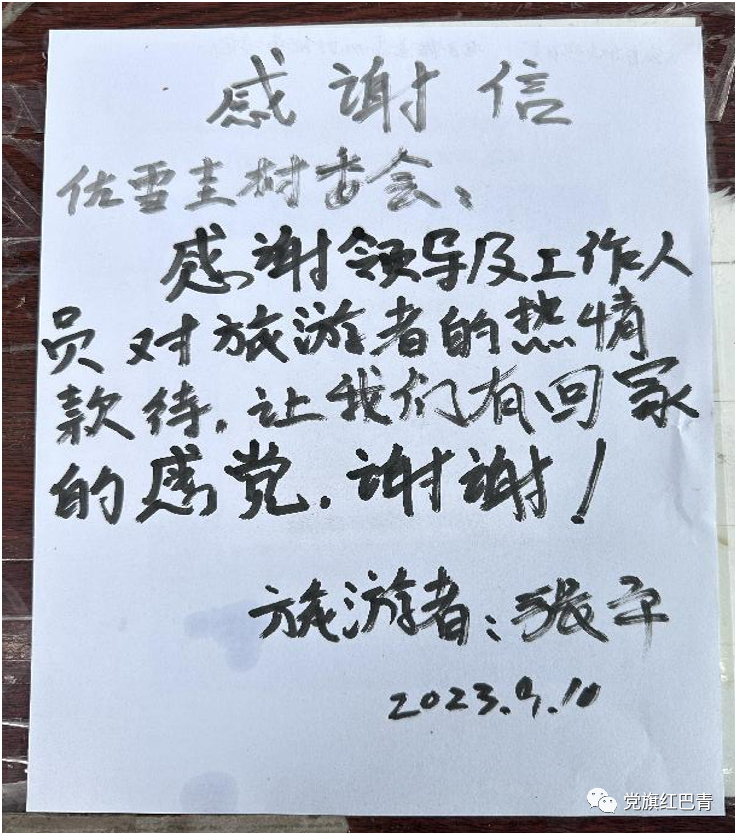 感谢信
佐雪圭村委会：
感谢领导及工作人
员对旅游者的热情
款待，让我们有回家
的感觉．谢谢！
旅游者：张平
2023.9.10
党旗红巴青